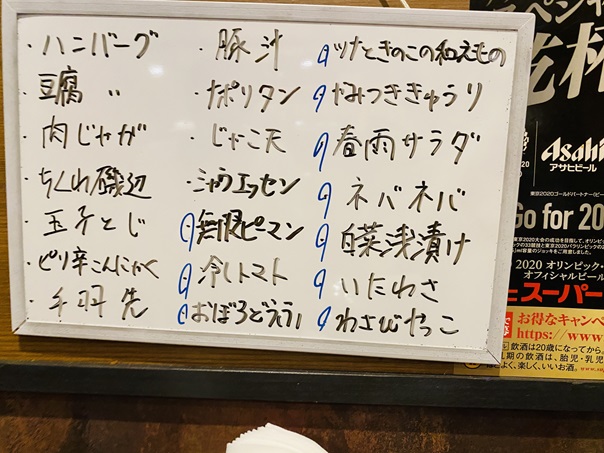 ・ハンバーグ
・豆腐 〃
・肉じゃが
・ちくわ磯辺
・玉子とじ
・ピリ辛こんにゃく
・手羽先
・豚汁
・ナポリタン
・じゃこ天
・シャウエッセン
無限ピーマン
冷しトマト
おぼろどうふ
ツナときのこの和えもの
やみつききゅうり
春雨サラダ
ネバネバ
白菜浅漬け
いたわさ
わさびやっこ
スペシャ
乾杯
Asahi
アサヒビール
東京2020ゴールドパートナー
Go for 20
2020 オリンピック・
オフィシャルビール
スーパー
お得なキャンペ
https://www
飲酒は20歳になってから
期の飲酒は、胎児・乳児
ほどよく、楽しく、いいお酒。